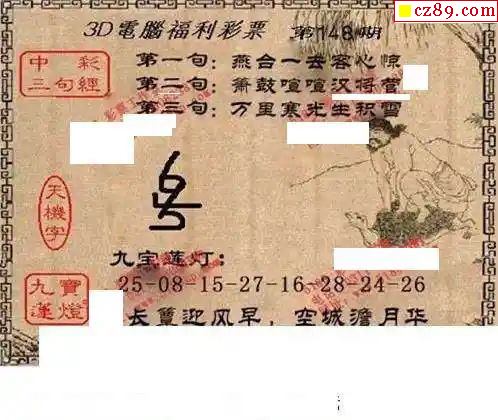 cz89.com
3D電腦福利彩票 第148期
中彩
三句經
第一句：燕台一去客心惊
第二句：箫鼓喧喧汉将营
第三句：万里寒光生积雪
天機字
九宝莲灯：
九寶蓮燈
25-08-15-27-16-28-24-26
长簟迎风早，空城澹月华